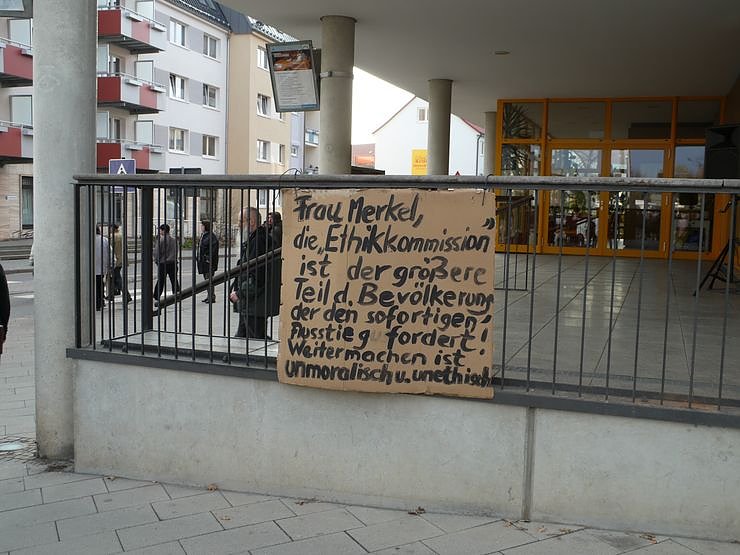 Frau Merkel,
die „Ethikkommission”
ist der größere
Teil d. Bevölkerung
der den sofortigen
Ausstieg fordert!
Weitermachen ist
unmoralisch u. unethisch
A